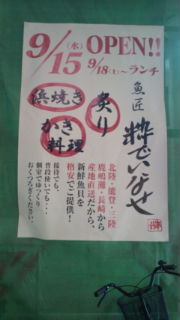 9/15(水)OPEN!!
9/18(土)〜ランチ
魚匠
粋でいなせ
炙り
浜焼き
かき料理
北陸・能登・三陸
鹿嶋灘・長崎から
産地直送だから、
新鮮魚貝を
格安でご提供!
接待でも、
普段使いでも・・・
個室でゆっくり
おくつろぎください。